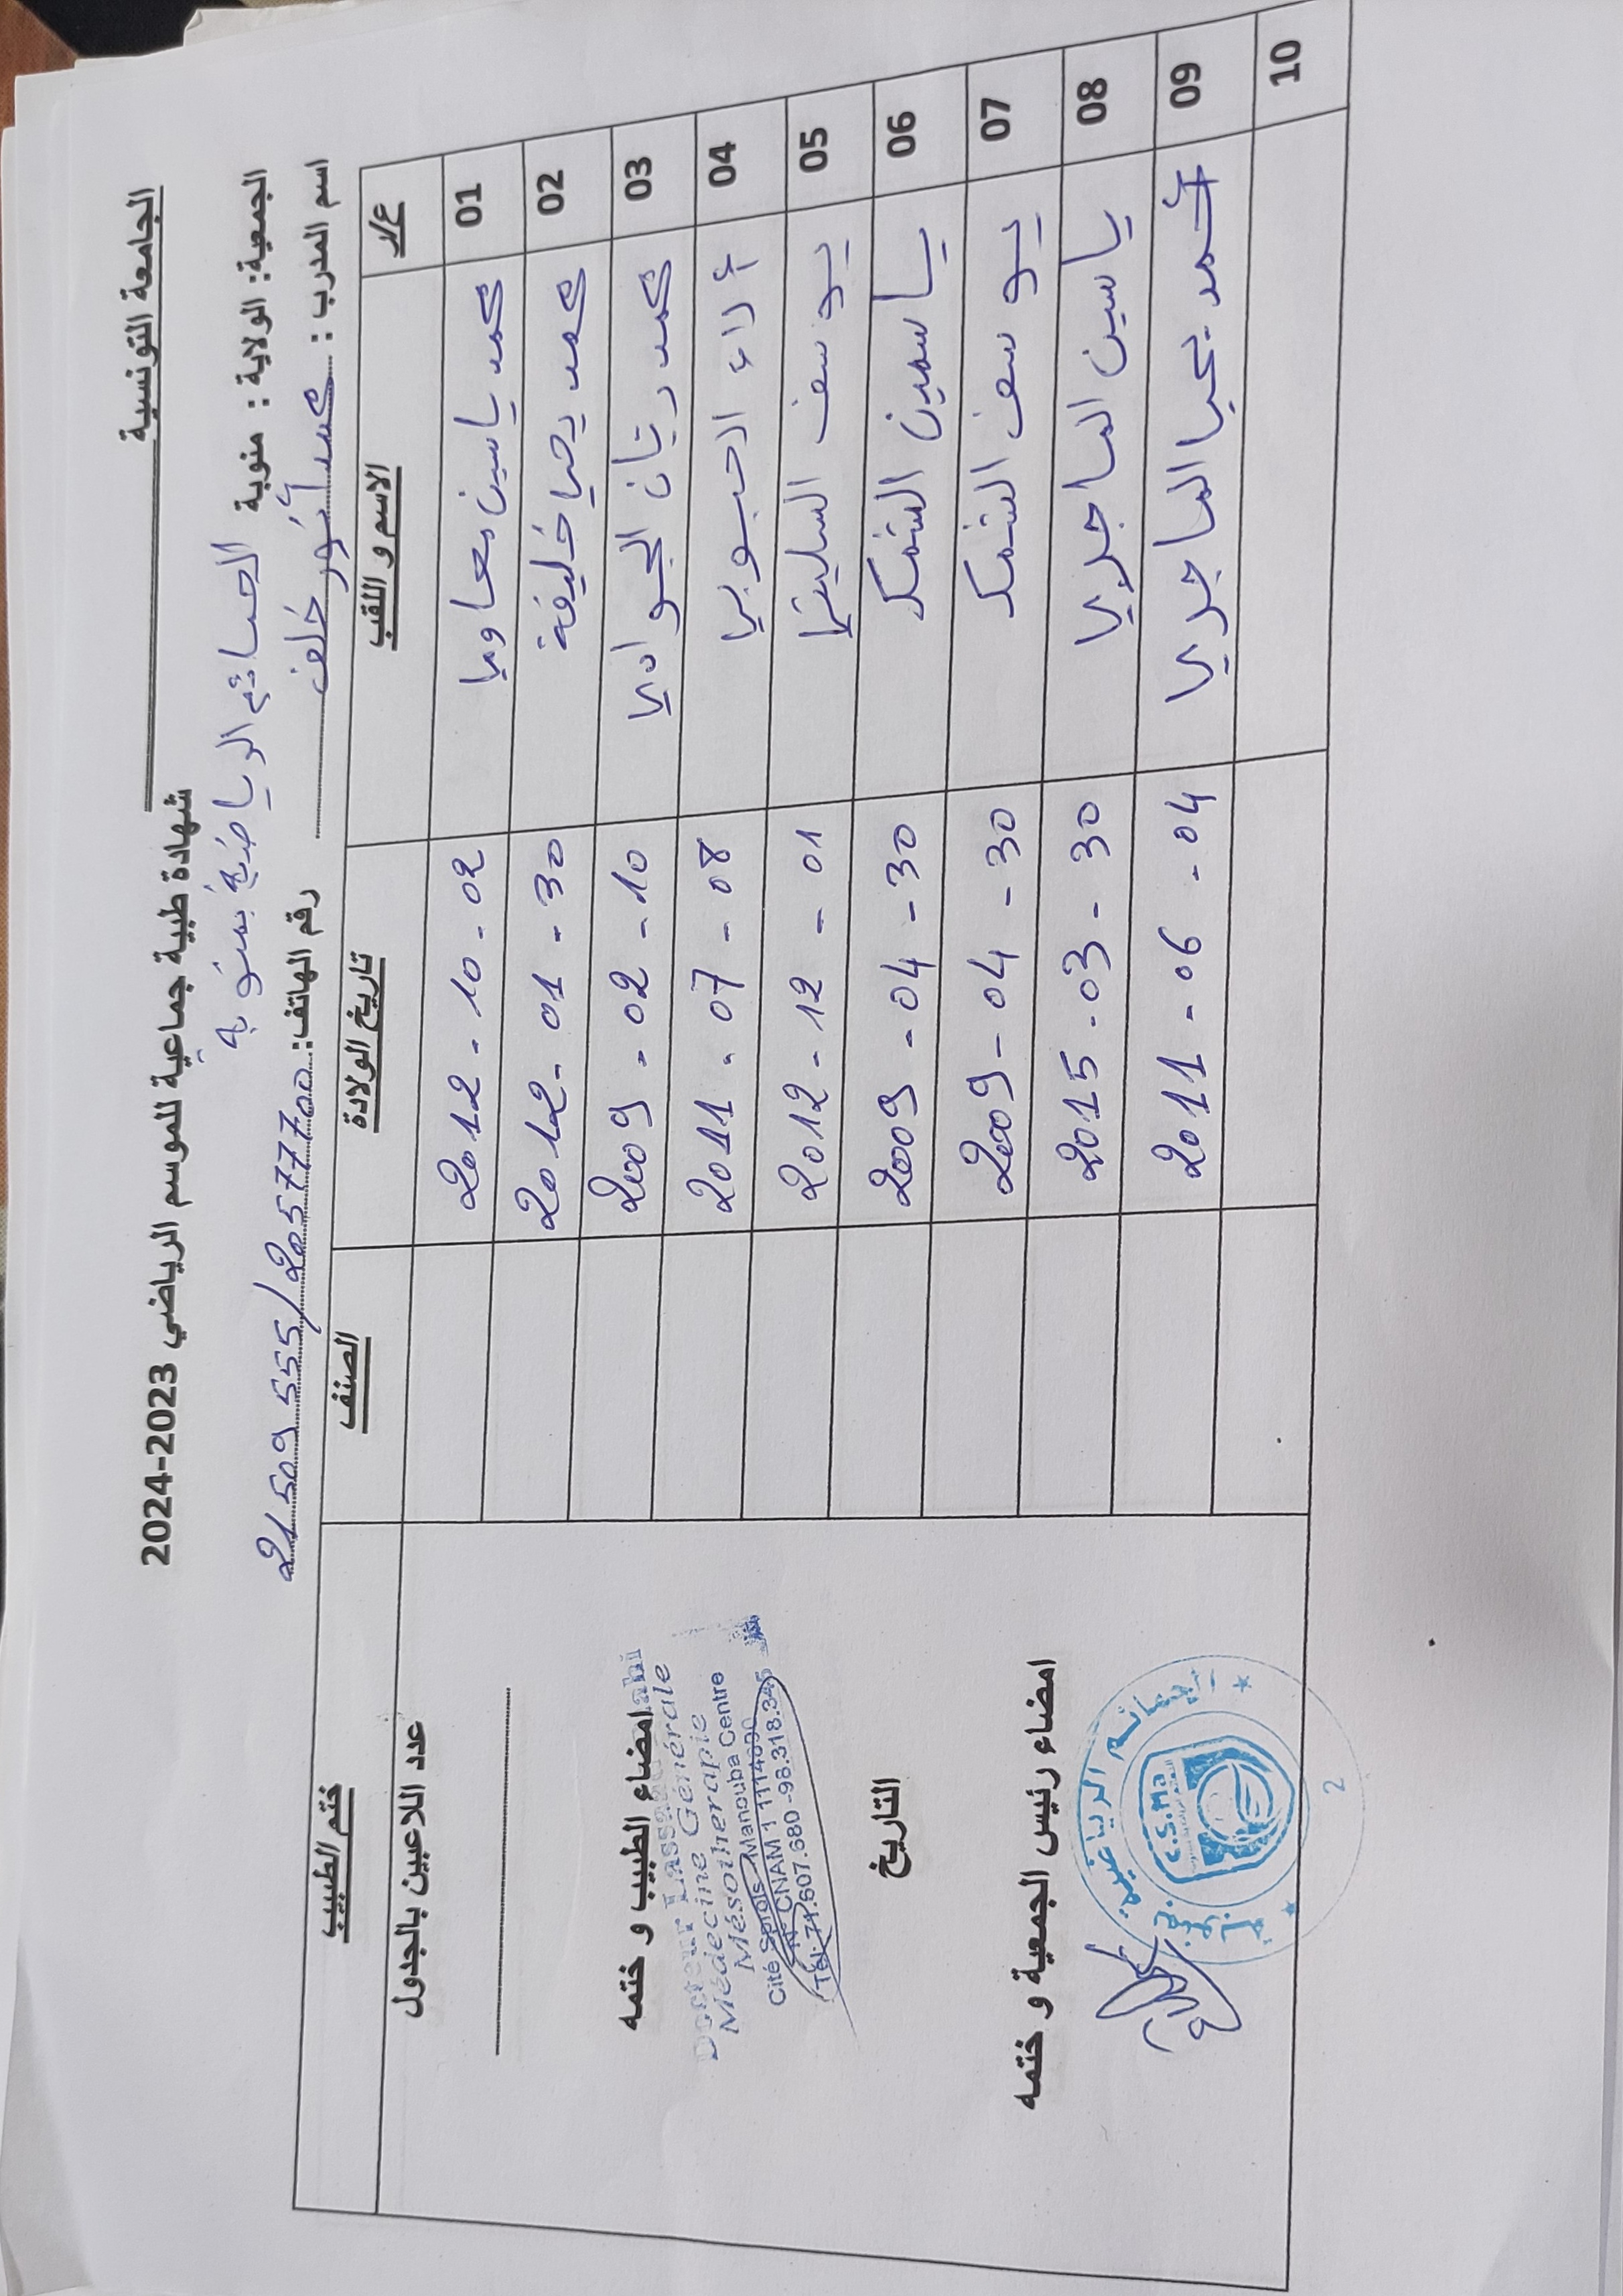 الجامعة التونسية
شهادة طبية جماعية للموسم الرياضي 2023-2024
الجمعية: الولاية : منوبة الحمائم الرياضية بمنوبة
اسم المدرب : محمد أنور خلف رقم الهاتف: 21 509 555 / 20 577 700
ع/ر الاسم و اللقب تاريخ الولادة الصنف ختم الطبيب
01 محمد ياسين معاوي 2012 - 10 - 02
02 محمد يحيا خليفة 2012 - 01 - 30
03 محمد ريان الجوادي 2009 - 02 - 10
04 ألاء الحبوبي 2011 - 07 - 08
05 يوسف السليتي 2012 - 12 - 01
06 ياسمين الشمك 2009 - 04 - 30
07 يوسف الشمك 2009 - 04 - 30
08 ياسين الماجري 2015 - 03 - 30
09 أحمد يحيا الماجري 2011 - 06 - 04
10
عدد اللاعبين بالجدول
امضاء الطبيب و ختمه
Docteur
Médecine Générale
Mésothérapie
Cité Sprols Manouba Centre
N° CNAM 1 1114690
Tél: 71.607.680 - 98.318.345
التاريخ
امضاء رئيس الجمعية و ختمه
C.S.Ma
2